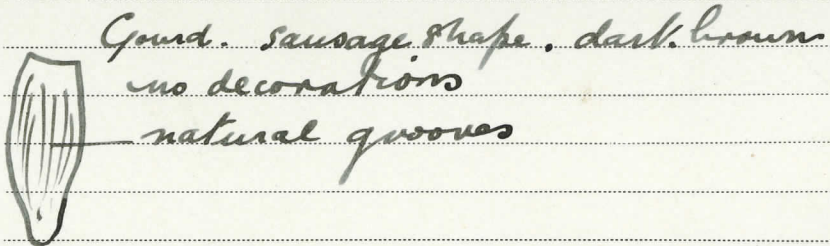 Gourd. sausage shape. dark brown
no decorations
natural grooves